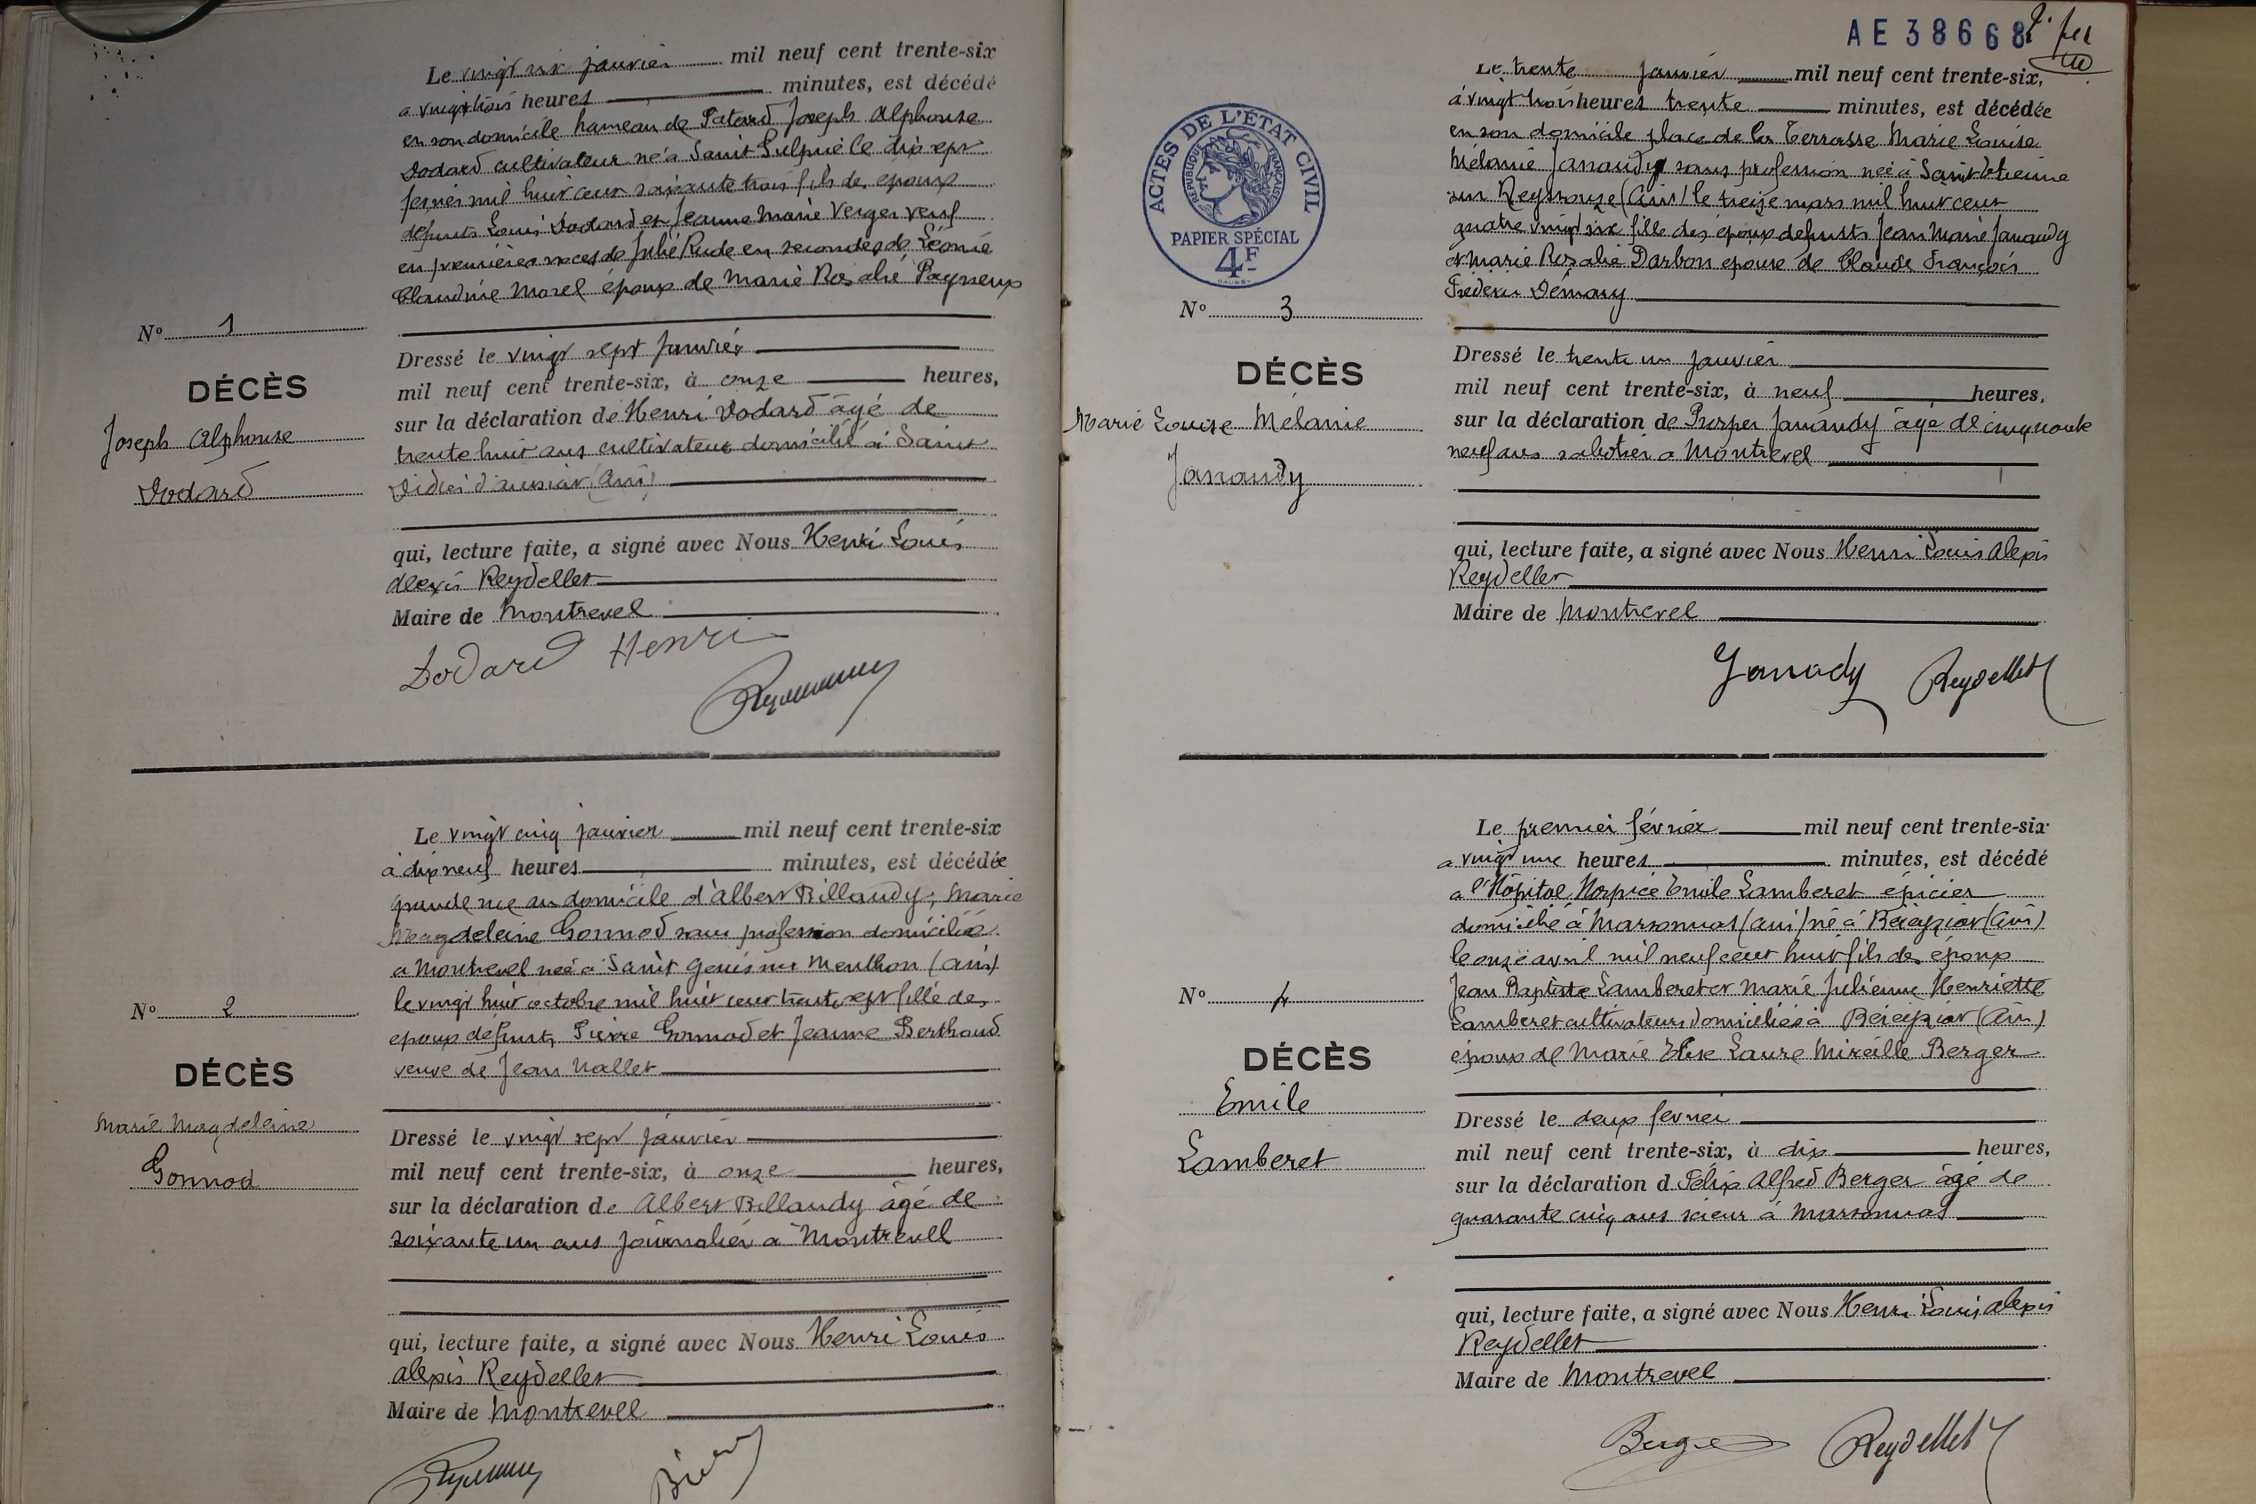 Le vingt six janvier mil neuf cent trente-six
à vingt trois heures minutes, est décédé
en son domicile hameau de Patard Joseph Alphonse
Dodard cultivateur né à Saint Sulpice le dix sept
février mil huit cent soixante trois fils des époux
défunts Louis Dodard et Jeanne Marie Verger veuf
en premières noces de Julie Rude en secondes de Léonie
Claudine Morel époux de Marie Rosalie Pagneux
N° 1
DÉCÈS
Joseph Alphonse
Dodard
Dressé le vingt sept janvier
mil neuf cent trente-six, à onze heures,
sur la déclaration de Henri Dodard âgé de
trente huit ans cultivateur domicilié à Saint
Didier d'aussiat (Ain)
qui, lecture faite, a signé avec Nous Henri Louis
Alexis Reydellet
Maire de Montrevel
Dodard Henri
Le vingt cinq janvier mil neuf cent trente-six
à dix neuf heures minutes, est décédée
grande rue au domicile d'Albert Billaudy, Marie
Magdeleine Gonnod sans profession domiciliée
à Montrevel née à Saint Genis sur Menthon (Ain)
le vingt huit octobre mil huit cent trente sept fille des
époux défunts Pierre Gonnod et Jeanne Berthoud
veuve de Jean Nallet
N° 2
DÉCÈS
Marie Magdeleine
Gonnod
Dressé le vingt sept janvier
mil neuf cent trente-six, à onze heures,
sur la déclaration de Albert Billaudy âgé de
soixante un ans journalier à Montrevel
qui, lecture faite, a signé avec Nous Henri Louis
Alexis Reydellet
Maire de Montrevel
AE 38668
ACTES DE L'ÉTAT CIVIL
RÉPUBLIQUE FRANÇAISE
PAPIER SPÉCIAL
4F
Le trente janvier mil neuf cent trente-six,
à vingt trois heures trente minutes, est décédée
en son domicile place de la Terrasse Marie Louise
Mélanie Janaudy sans profession née à Saint Etienne
sur Reyssouze (Ain) le treize mars mil huit cent
quatre vingt six fille des époux défunts Jean Marie Janaudy
et Marie Rosalie Darbon épouse de Claude François
Frédéric Démary
N° 3
DÉCÈS
Marie Louise Mélanie
Janaudy
Dressé le trente un janvier
mil neuf cent trente-six, à neuf heures,
sur la déclaration de Prosper Janaudy âgé de cinquante
neuf ans sabotier à Montrevel
qui, lecture faite, a signé avec Nous Henri Louis Alexis
Reydellet
Maire de Montrevel
Janody Reydellet
Le premier février mil neuf cent trente-six
à vingt une heures minutes, est décédé
à l'Hôpital Hospice Emile Lamberet épicier
domicilié à Marsonnas (Ain) né à Béréziat (Ain)
le onze avril mil neuf cent huit fils des époux
Jean Baptiste Lamberet et Marie Julienne Henriette
Lamberet cultivateurs domiciliés à Béréziat (Ain)
époux de Marie Elise Laure Mireille Berger
N° 4
DÉCÈS
Emile
Lamberet
Dressé le deux février
mil neuf cent trente-six, à dix heures,
sur la déclaration d Félix Alfred Berger âgé de
quarante cinq ans scieur à Marsonnas
qui, lecture faite, a signé avec Nous Henri Louis Alexis
Reydellet
Maire de Montrevel
Berger Reydellet